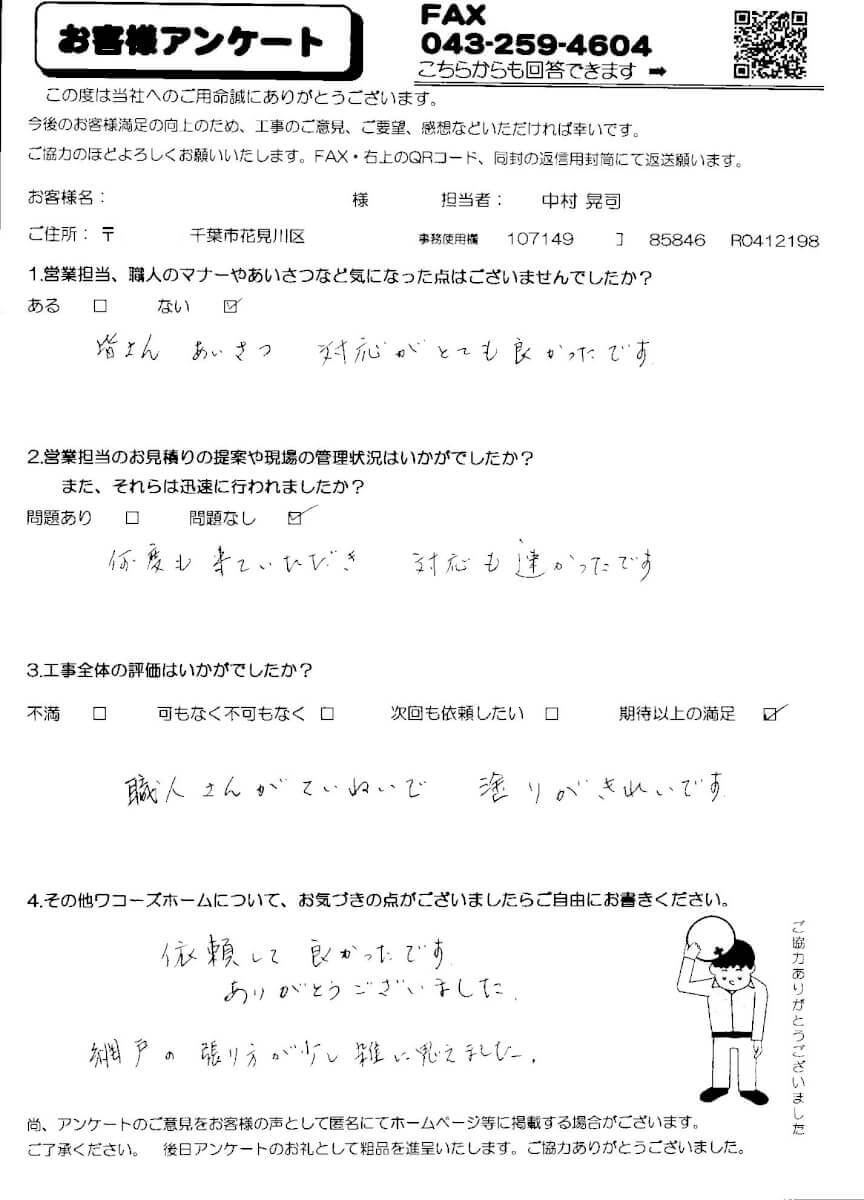 お客様アンケート
FAX
043-259-4604
こちらからも回答できます ➡
この度は当社へのご用命誠にありがとうございます。
今後のお客様満足の向上のため、工事のご意見、ご要望、感想などいただければ幸いです。
ご協力のほどよろしくお願いいたします。FAX・右上のQRコード、同封の返信用封筒にて返送願います。
お客様名： 様 担当者： 中村 晃司
ご住所：〒 千葉市花見川区 事務使用欄 107149 ] 85846 R0412198
1.営業担当、職人のマナーやあいさつなど気になった点はございませんでしたか？
ある □ ない ☑
皆さん あいさつ 対応がとても良かったです
2.営業担当のお見積りの提案や現場の管理状況はいかがでしたか？
また、それらは迅速に行われましたか？
問題あり □ 問題なし ☑
何度も来ていただき 対応も速かったです
3.工事全体の評価はいかがでしたか？
不満 □ 可もなく不可もなく □ 次回も依頼したい □ 期待以上の満足 ☑
職人さんがていねいで 塗りがきれいです
4.その他ワコーズホームについて、お気づきの点がございましたらご自由にお書きください。
依頼して良かったです。
ありがとうございました。
網戸の張り方が少し雑に見えました。
ご協力ありがとうございました
尚、アンケートのご意見をお客様の声として匿名にてホームページ等に掲載する場合がございます。
ご了承ください。 後日アンケートのお礼として粗品を進呈いたします。ご協力ありがとうございました。